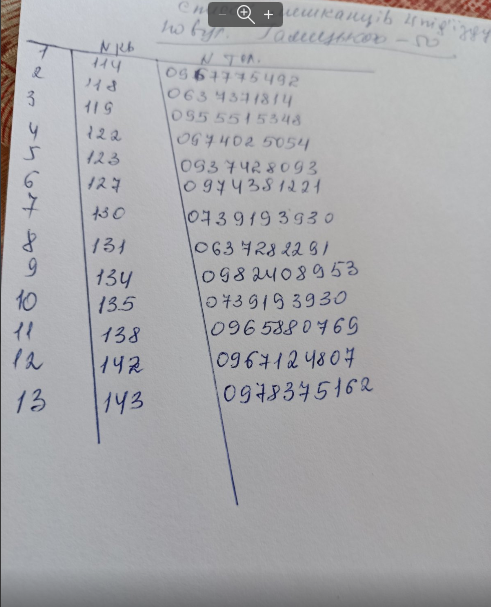 мешканців 4 під'їзду
по вул.
N кв N тел.
1 114 0967775492
2 118 0637371814
3 119 0955515348
4 122 0974025054
5 123 0937428093
6 127 0974381221
7 130 0739193930
8 131 0637282291
9 134 0982408953
10 135 0739193930
11 138 0965880769
12 142 0967124807
13 143 0978375162